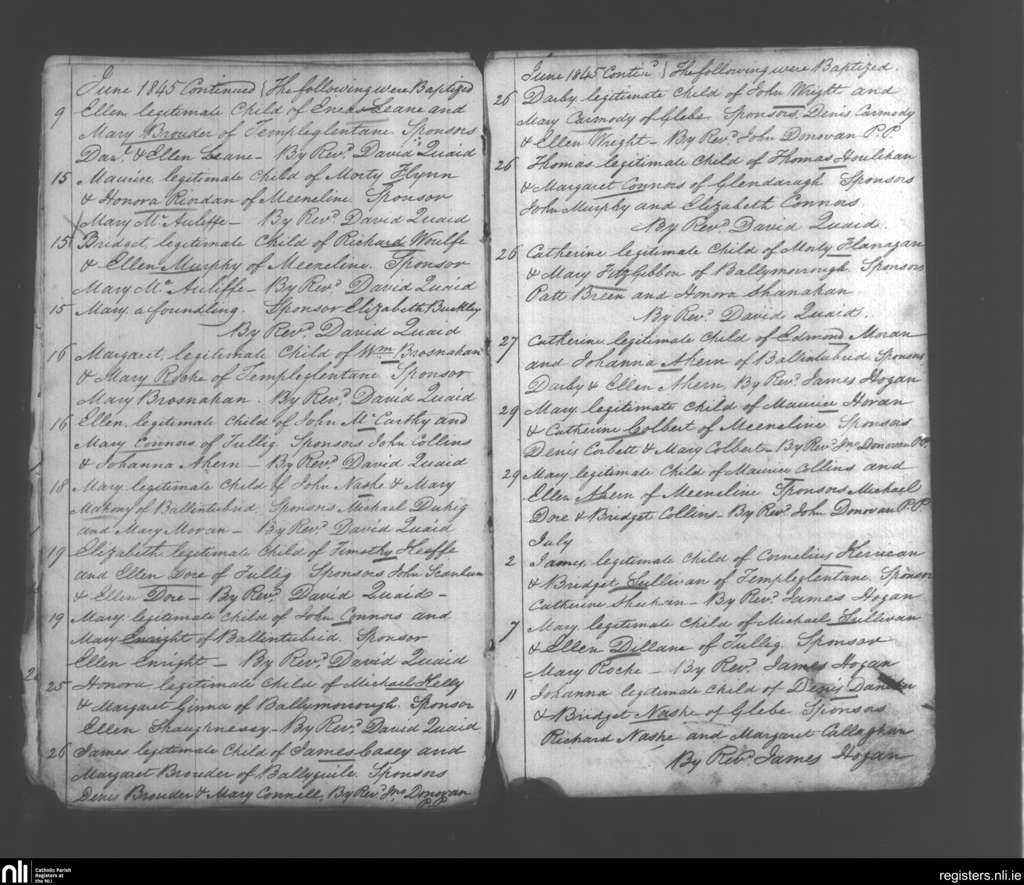 June 1845 Continued { The following were Baptized
9 Ellen legitimate Child of Eneas Leane and
Mary Brouder of Templeglentane Sponsors
Darl. & Ellen Leane – By Revd. David Quaid
15 Maurice legitimate Child of Morty Flynn
& Honora Riordan of Meeneline Sponsor
Mary Mc. Auliffe – By Revd. David Quaid
15 Bridget legitimate Child of Richard Woulfe
& Ellen Murphy of Meeneline. Sponsor
Mary Mc. Auliffe – By Revd. David Quaid
15 Mary a foundling. Sponsor Elizabeth Buckley
By Revd. David Quaid
16 Margaret legitimate Child of Wm. Brosnahan
& Mary Roche of Templeglentane Sponsor
Mary Brosnahan. By Revd. David Quaid
16 Ellen, legitimate Child of John Mc. Carthy and
Mary Connors of Tullig Sponsors John Collins
& Johanna Ahern – By Revd. David Quaid
18 Mary legitimate Child of John Nashe & Mary
Mahony of Ballentubrid, Sponsors Michael Duhig
and Mary Moran – By Revd. David Quaid
19 Elizabeth legitimate Child of Timothy Keaffe
and Ellen Dore of Tullig Sponsors John Scanlan
& Ellen Dore – By Revd. David Quaid –
19 Mary legitimate Child of John Connors and
Mary Enright of Ballentubrid. Sponsor
Ellen Enright – By Revd. David Quaid
25 Honora legitimate Child of Michael Kelly
& Margaret Ginna of Ballymorrough. Sponsor
Ellen Shaughnessy – By Revd. David Quaid
26 James legitimate Child of James Casey and
Margaret Brouder of Ballyguile. Sponsors
Denis Brouder & Mary Connell, By Revd. Jno. Donovan
P.P.
June 1845 Contd. } The following were Baptized.
26 Darby legitimate Child of John Wright and
Mary Carmody of Glebe. Sponsors, Denis Carmody
& Ellen Wright – By Revd. John Donovan P.P.
26 Thomas legitimate Child of Thomas Houlihan
& Margaret Connors of Glendaragh Sponsors
John Murphy and Elizabeth Connors
By Revd. David Quaid.
26 Catherine legitimate Child of Morty Flanagan
& Mary FitzGibbon of Ballymorrough. Sponsors
Patt Breen and Honora Shanahan
By Revd. David Quaid.
27 Catherine legitimate Child of Edmond Moran
and Johanna Ahern of Ballintubrid Sponsors
Darby & Ellen Ahern, By Revd. James Hogan
29 Mary legitimate Child of Maurice Horan
& Catherine Colbert of Meeneline Sponsors
Denis Corbett & Mary Colbert – By Revd. Jno. Donovan P.P.
29 Mary legitimate Child of Maurice Collins and
Ellen Ahern of Meeneline Sponsors Michael
Dore & Bridget Collins – By Revd. John Donovan P.P.
July
2 James, legitimate Child of Cornelius Keirecan
& Bridget Sullivan of Templeglentane, Sponsor
Catherine Sheehan – By Revd. James Hogan
7 Mary, legitimate Child of Michael Sullivan
& Ellen Dillane of Tullig. Sponsor
Mary Roche – By Revd. James Hogan
11 Johanna legitimate Child of Denis
& Bridget Nashe of Glebe Sponsors
Richard Nashe and Margaret Callaghan
By Revd. James Hogan
nli Catholic Parish
Registers at
the NLI
registers.nli.ie